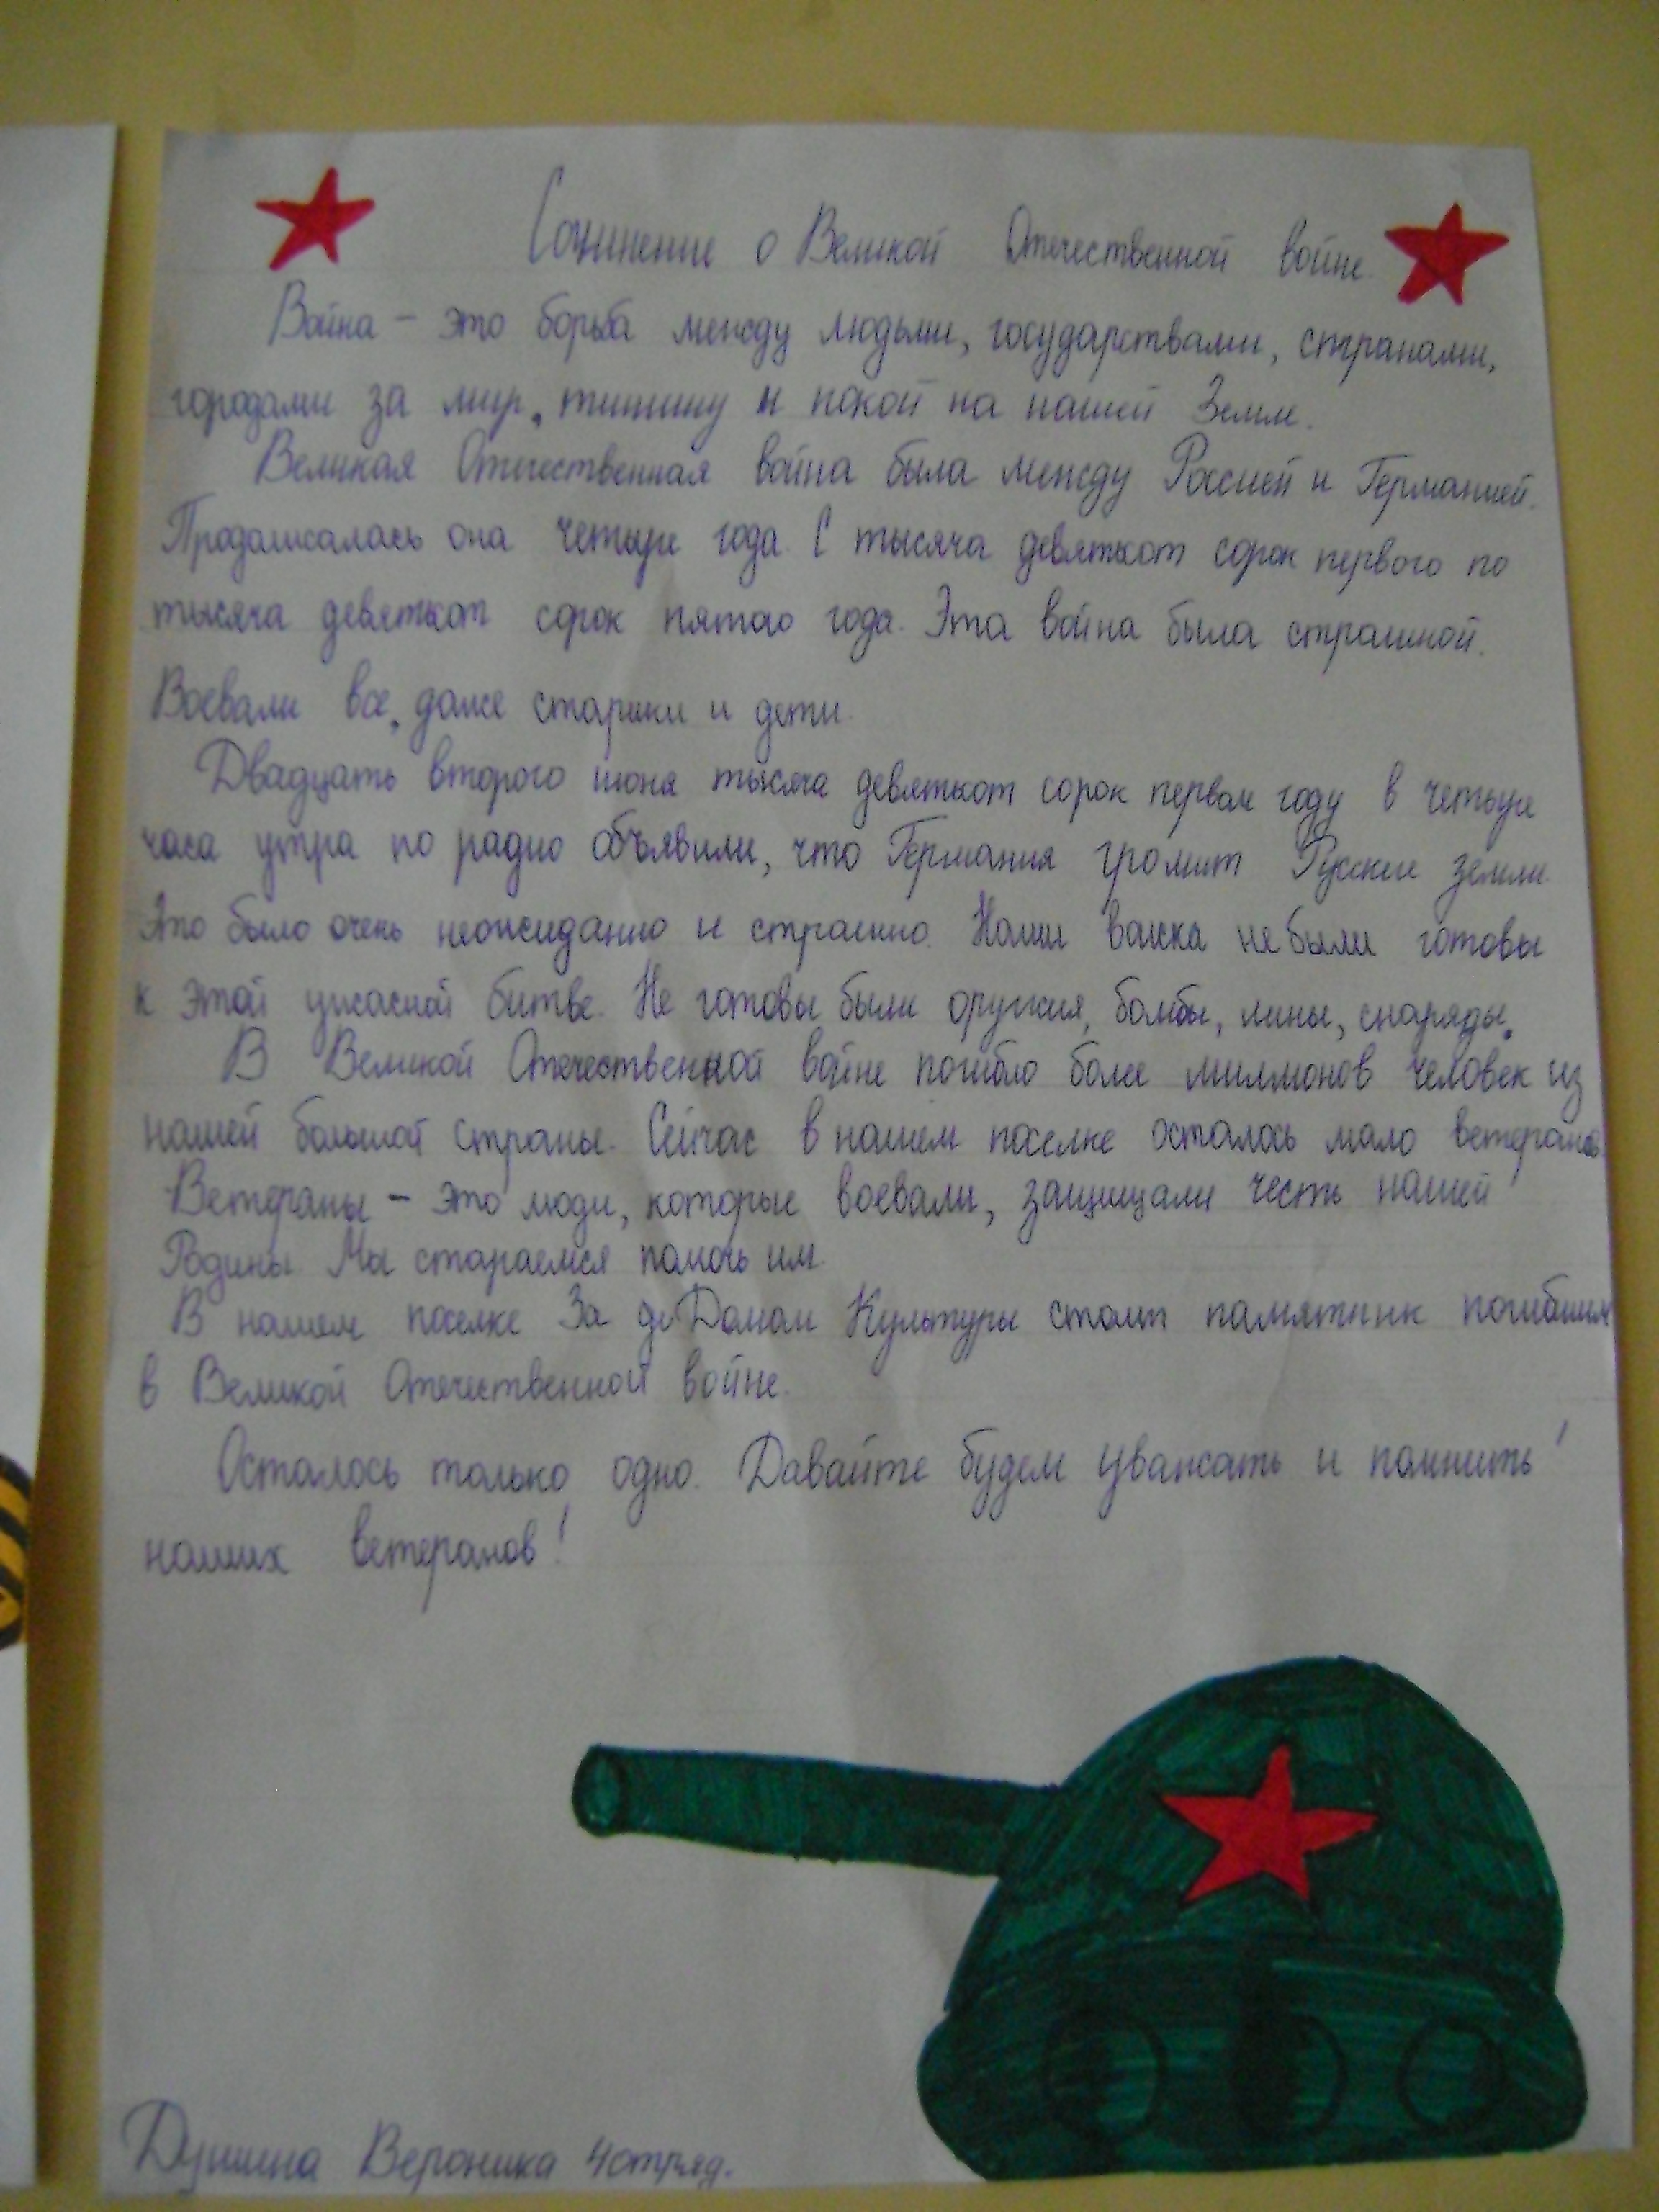 Сочинение о Великой Отечественной войне.
Война - это борьба между людьми, государствами, странами,
городами за мир, тишину и покой на нашей Земле.
Великая Отечественная война была между Россией и Германией.
Продолжалась она четыре года. С тысяча девятьсот сорок первого по
тысяча девятьсот сорок пятого года. Эта война была страшной.
Воевали все, даже старики и дети.
Двадцать второго июня тысяча девятьсот сорок первом году в четыре
часа утра по радио объявили, что Германия громит Русские земли.
Это было очень неожиданно и страшно. Наши вайска не были готовы
к этой ужасной битве. Не готовы были оружия, бомбы, мины, снаряды.
В Великой Отечественной войне погибло более миллионов человек из
нашей большой страны. Сейчас в нашем поселке осталось мало ветеранов.
Ветераны - это люди, которые воевали, защищали честь нашей
Родины. Мы стараемся помочь им.
В нашем поселке За Домом Культуры стоит памятник погибшим
в Великой Отечественной войне.
Осталось только одно. Давайте будем уважать и помнить
наших ветеранов!
Вероника 4 отряд.